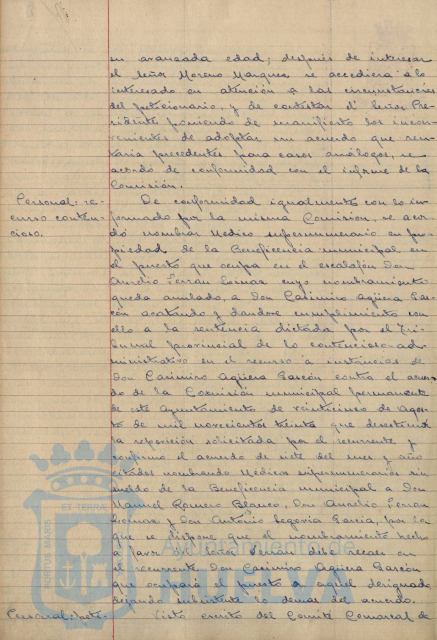 su avanzada edad; después de interesar
el Señor Moreno Marquez se accediera a lo
interesado en atención a las circunstancias
del peticionario, y de contestar el Señor Pre-
sidente poniendo de manifiesto los incon-
venientes de adoptar un acuerdo que sen-
taria precedentes para casos análogos, se
acordó de conformidad con el informe de la
Comisión.
Personal: re-
curso conten-
cioso.
De conformidad igualmente con lo in-
formado por la misma Comision, se acor-
dó nombrar Médico supernumerario en pro-
piedad de la Beneficencia municipal en
el puesto que ocupa en el escalafón Don
Aurelio Ferran Lomas cuyo nombramiento
queda anulado, a Don Casimiro Agüera Gas-
cón acatando y dandose cumplimiento con
ello a la sentencia dictada por el Tri-
bunal provincial de lo contencioso-ad-
ministrativo en el recurso a instancias de
Don Casimiro Agüera Gascón contra el acuer-
do de la Comisión municipal permanente
de este Ayuntamiento de veinticinco de Agos-
to de mil novecientos treinta que desestimó
la reposición solicitada por el recurrente y
confirmó el acuerdo de siete del mes y año
citados nombrando Médicos supernumerarios sin
sueldo de la Beneficencia municipal a Don
Manuel Romero Blanco, Don Aurelio Ferran
Lomas y Don Antonio Segovia Garcia, por lo
que se dispone que el nombramiento hecho
a favor del Señor Ferran debe recaer en
el recurrente Don Casimiro Agüera Gascón
que ocupará el puesto a aquel designado
dejando subsistente lo demas del acuerdo.
Personal: peti-
Visto escrito del Comité Comarcal de
PORTUS MARIS ET TERRAE
Ayuntamiento de
HUELVA